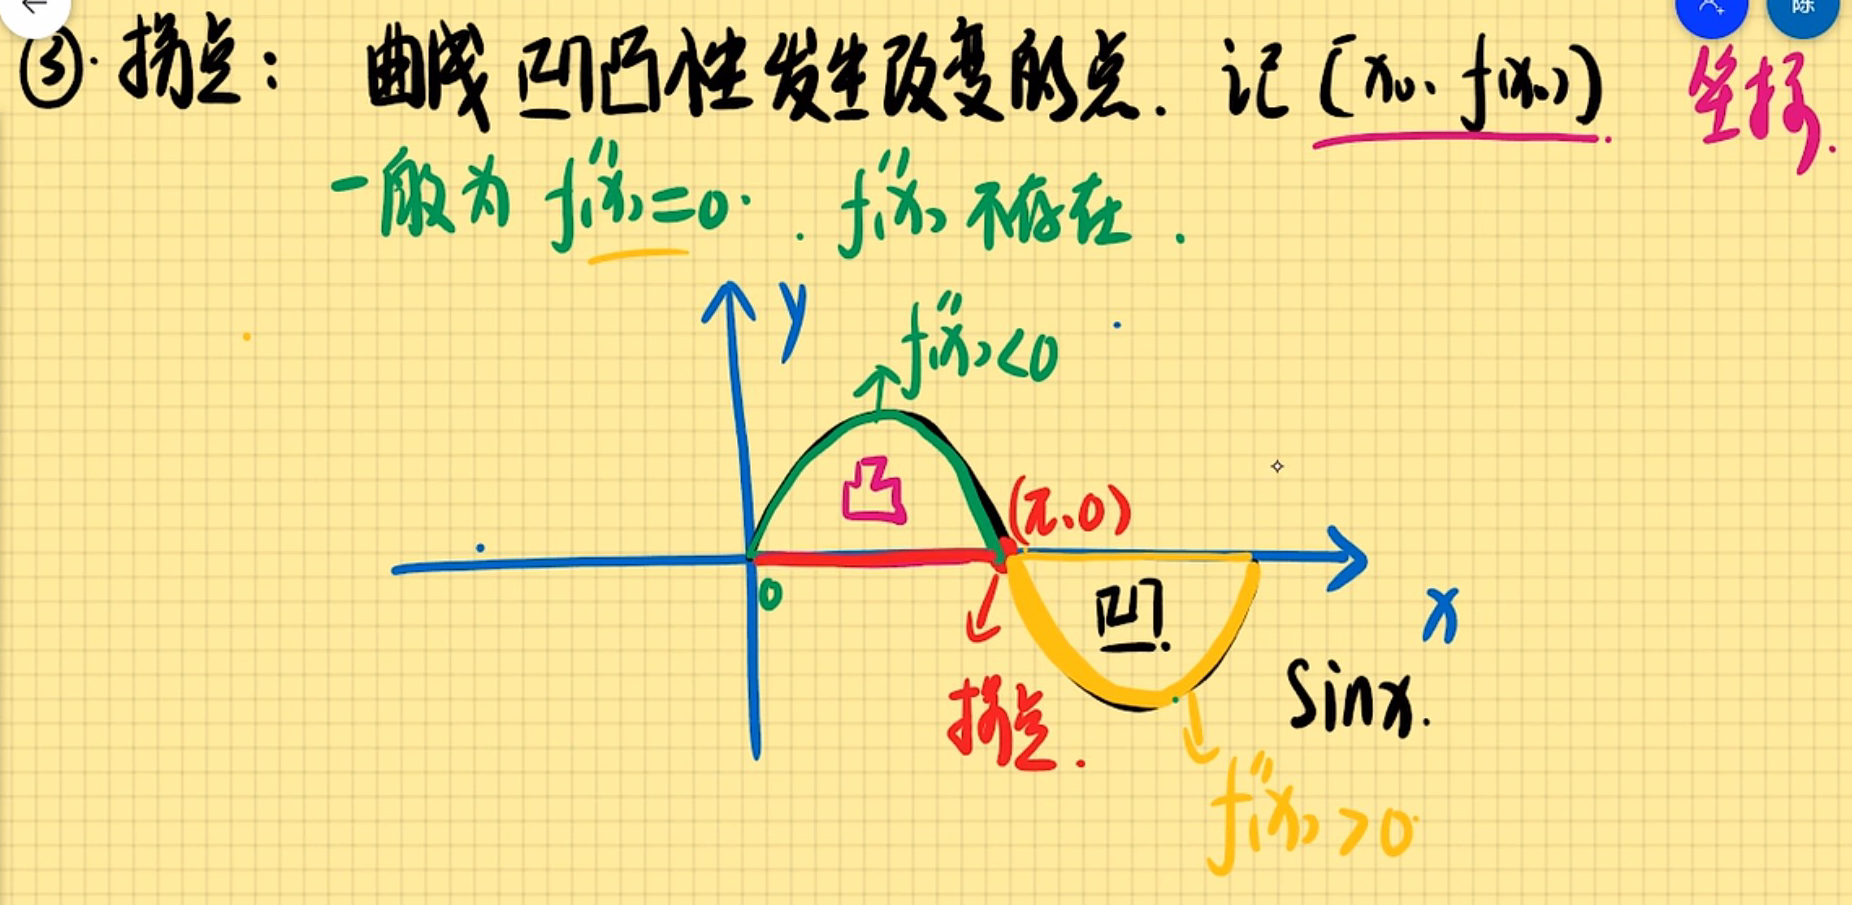 ③. 拐点： 曲线凹凸性发生改变的点. 记 (x₀, f(x₀)) 坐标.
一般为 f''(x)=0. . f''(x) 不存在.
y
f''(x)<0
凸
(π,0)
0
凹.
x
拐点.
Sinx.
f''(x)>0
陈